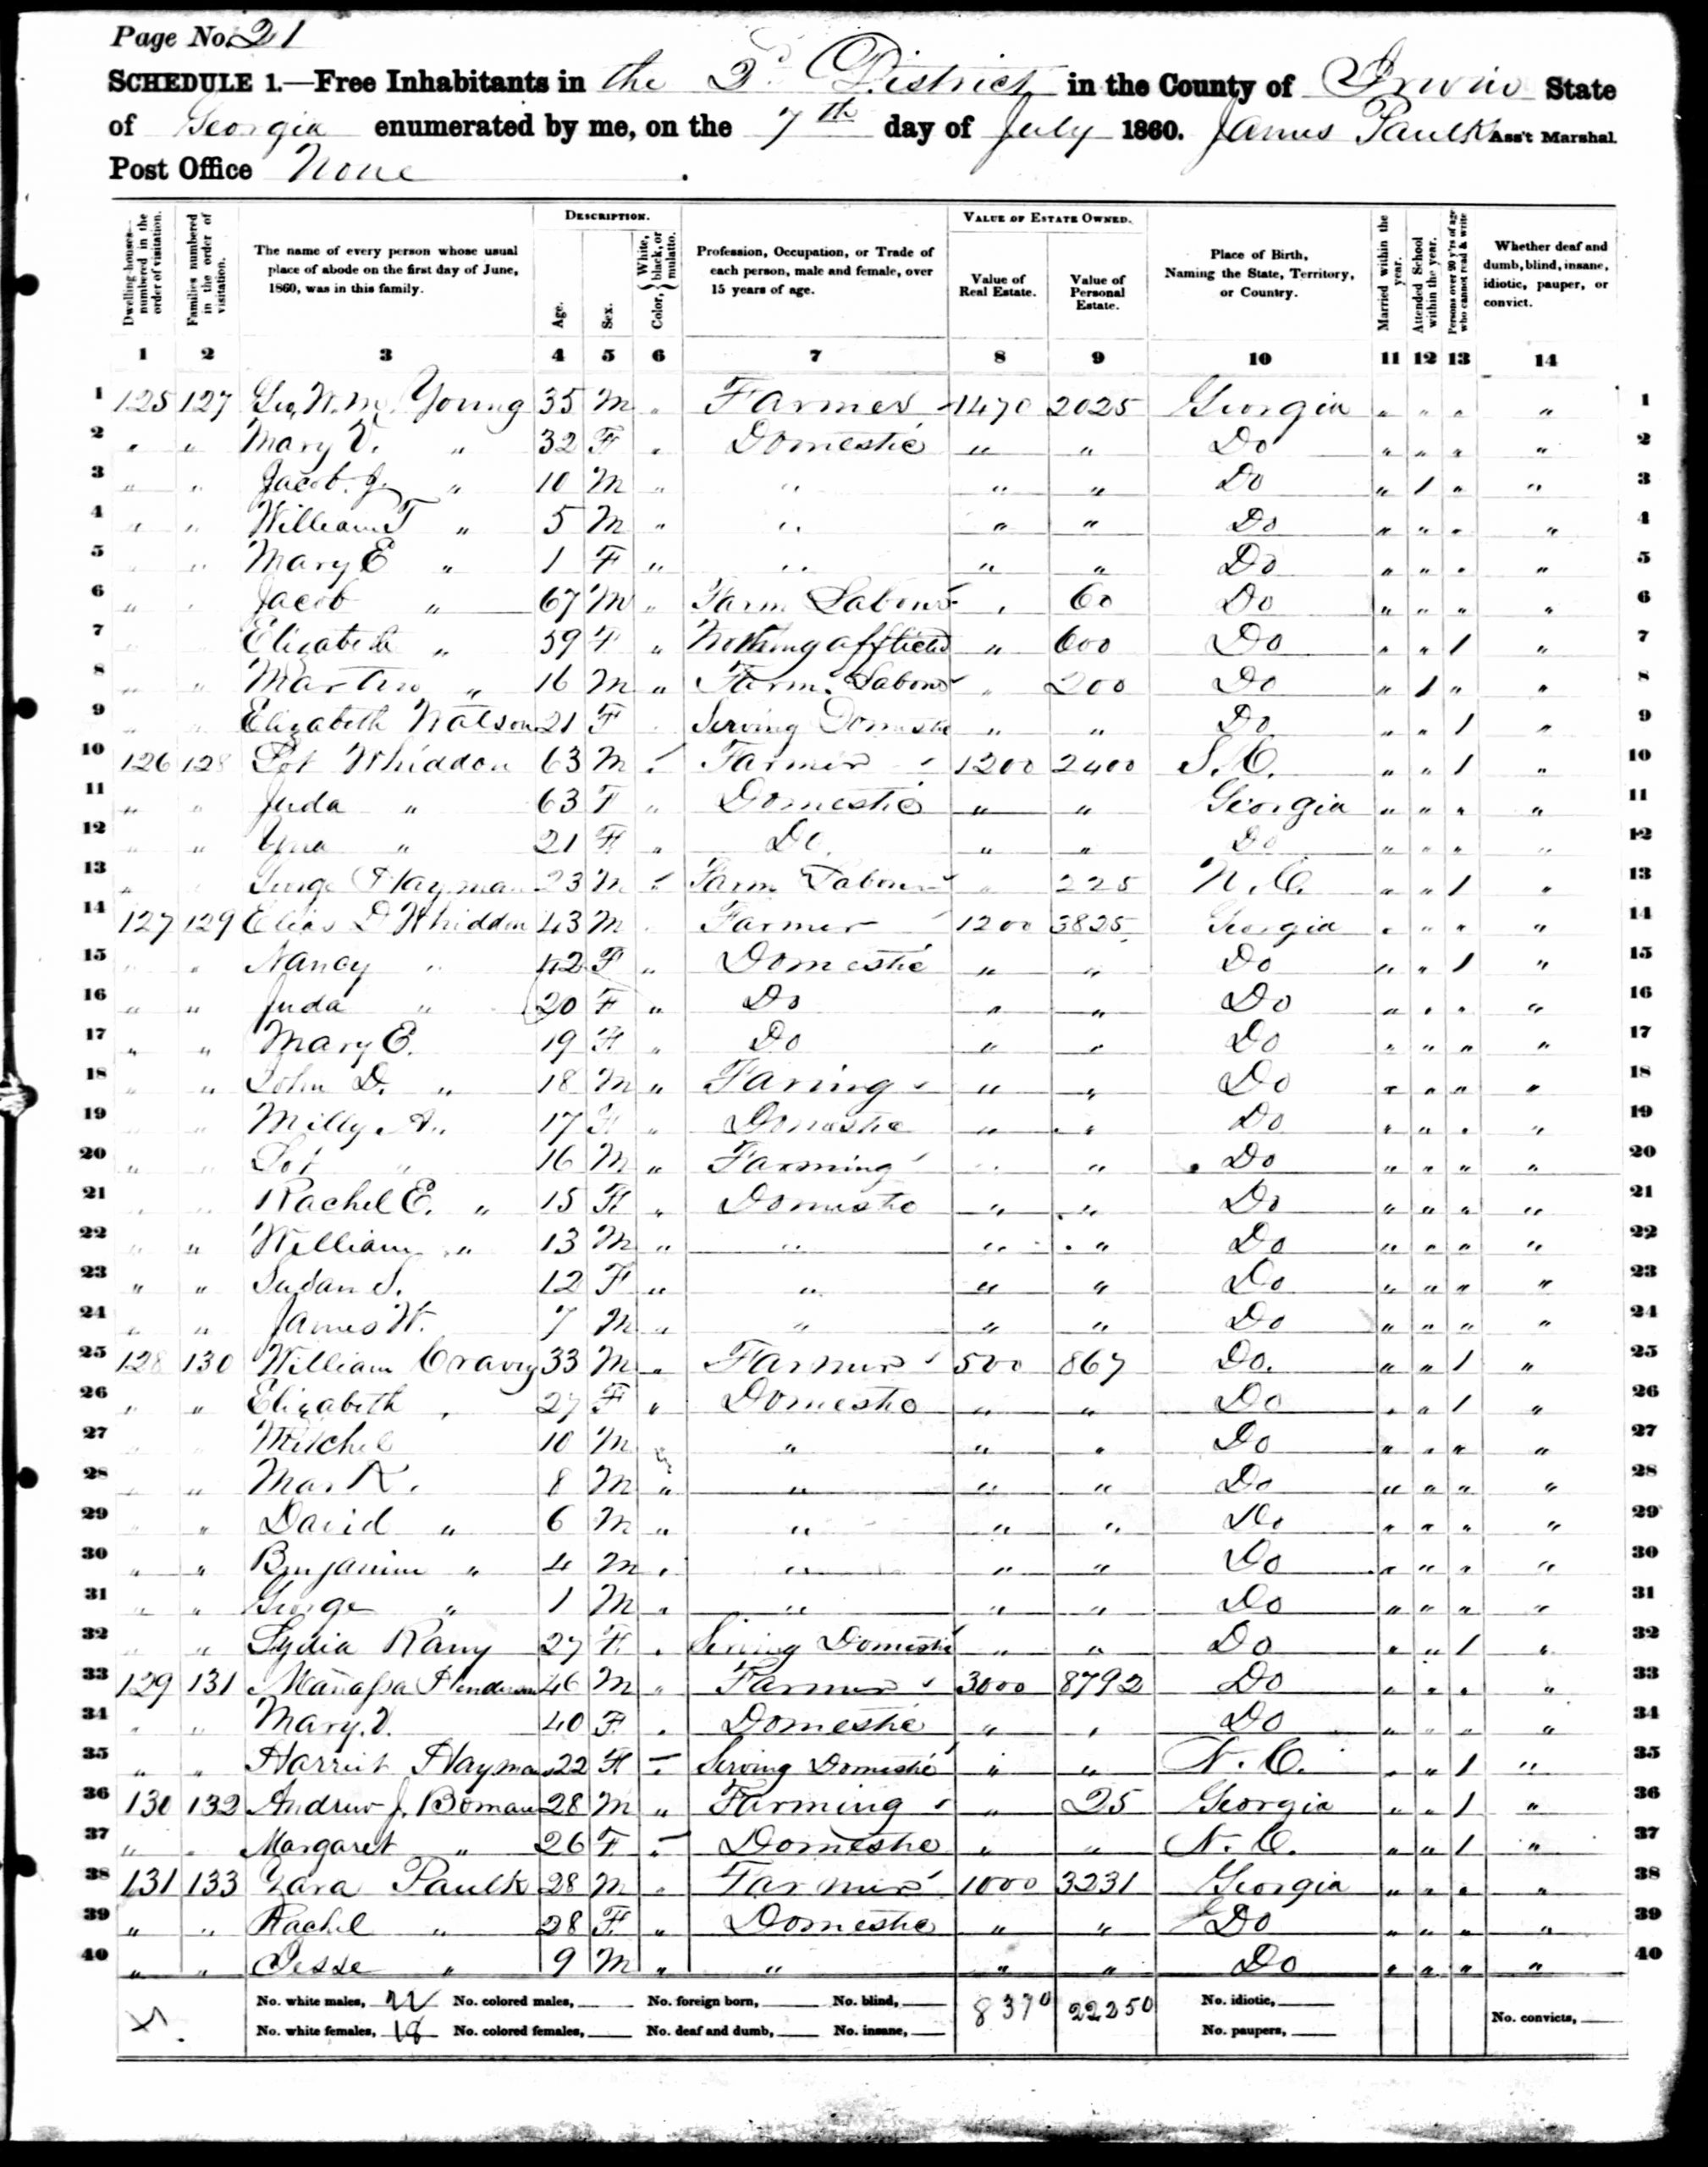 Page No. 21
SCHEDULE 1.—Free Inhabitants in the 3d District in the County of Irwin State
of Georgia enumerated by me, on the 7th day of July 1860. James Paulk Ass't Marshal.
Post Office None
Dwelling-houses—numbered in the order of visitation. Families numbered in the order of visitation. The name of every person whose usual place of abode on the first day of June, 1860, was in this family. DESCRIPTION. Age. Sex. Color, { White, black, or mulatto. Profession, Occupation, or Trade of each person, male and female, over 15 years of age. VALUE OF ESTATE OWNED. Value of Real Estate. Value of Personal Estate. Place of Birth, Naming the State, Territory, or Country. Married within the year. Attended School within the year. Persons over 20 y'rs of age who cannot read & write Whether deaf and dumb, blind, insane, idiotic, pauper, or convict.
1 2 3 4 5 6 7 8 9 10 11 12 13 14
1 125 127 Young 35 M " Farmer 1470 2025 Georgia " " " " 1
2 " " Mary V. " 32 F " Domestic " " Do " " " " 2
3 " " Jacob J. " 10 M " " " " Do " 1 " " 3
4 " " William T " 5 M " " " " Do " " " " 4
5 " " Mary E " 1 F " " " " Do " " " " 5
6 " " Jacob " 67 M " Farm Labour " 60 Do " " " " 6
7 Elizabeth " 59 F " Nothing afflicted " 600 Do " " 1 " 7
8 " " Martin " 16 M " Farm Labour " 200 Do " 1 " " 8
9 " " Elizabeth Watson 21 F " Serving Domestic " " Do " " 1 " 9
10 126 128 Lot Whiddon 63 M " Farmer 1200 2400 S.C. " " 1 " 10
11 " " Juda " 63 F " Domestic " " Georgia " " " " 11
12 " " " 21 F " Do. " " Do " " " " 12
13 " " Hayman 23 M " Farm Labour " 225 N.C. " " 1 " 13
14 127 129 Elias D Whiddon 43 M " Farmer 1200 3825 Georgia " " " " 14
15 " " Nancy " 42 F " Domestic " " Do " " 1 " 15
16 " " Juda " 20 F " Do " " Do " " " " 16
17 " " Mary E. 19 F " Do " " Do " " " " 17
18 " " John D. " 18 M " Faring " " Do " " " " 18
19 " " Milly A. " 17 F " Domestic " " Do " " " " 19
20 " " Lot " 16 M " Farming " " Do " " " " 20
21 " " Rachel E. " 15 F " Domestic " " Do " " " " 21
22 " " William " 13 M " " " " Do " " " " 22
23 " " Susan S. 12 F " " " " Do " " " " 23
24 " " James W. 7 M " " " " Do " " " " 24
25 128 130 William Cravey 33 M " Farmer 500 867 Do. " " 1 " 25
26 " " Elizabeth " 27 F " Domestic " " Do " " 1 " 26
27 " " Mitchel 10 M " " " " Do " " " " 27
28 " " Mark. 8 M " " " " Do " " " " 28
29 " " David " 6 M " " " " Do " " " " 29
30 " " Benjamin " 4 M " " " " Do " " " " 30
31 " " George " 1 M " " " " Do " " " " 31
32 " " Lydia Rany 27 F " Serving Domestic " " Do " " 1 " 32
33 129 131 Manassa Henderson 46 M " Farmer 3000 8792 Do " " " " 33
34 " " Mary. V. 40 F " Domestic " " Do " " " " 34
35 " " Harriet Hayman 22 F " Serving Domestic " " N.C. " " 1 " 35
36 130 132 Andrew J. Boman 28 M " Farming " 25 Georgia " " 1 " 36
37 " " Margaret " 26 F " Domestic " " N.C. " " 1 " 37
38 131 133 Paulk 28 M " Farmer 1000 3231 Georgia " " " " 38
39 " " Rachel " 28 F " Domestic " " Do " " " " 39
40 " " Jesse " 9 M " " " " Do " " " " 40
No. white males, 22 No. colored males, No. foreign born, No. blind, 8370 22250 No. idiotic,
No. white females, 18 No. colored females, No. deaf and dumb, No. insane, No. paupers, No. convicts,